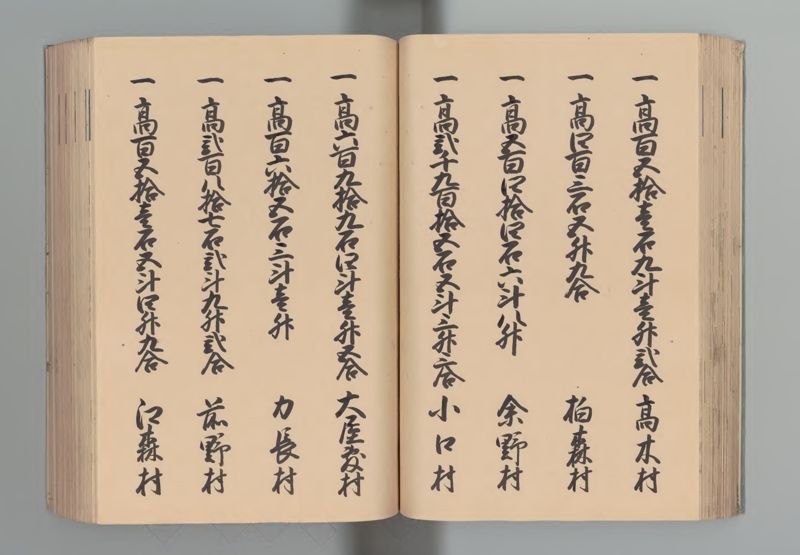 一高百五拾壱石九斗壱升弐合 高木村
一高四百三石五升九合 柏森村
一高五百四拾四石六斗八升 余野村
一高弐千九百拾五石五斗三升六合 小口村
一高六百九拾九石四斗壱升五合 大屋敷村
一高百六拾五石三斗壱升 力長村
一高弐百八拾七石弐斗九升弐合 前野村
一高百五拾壱石五斗四升九合 江森村